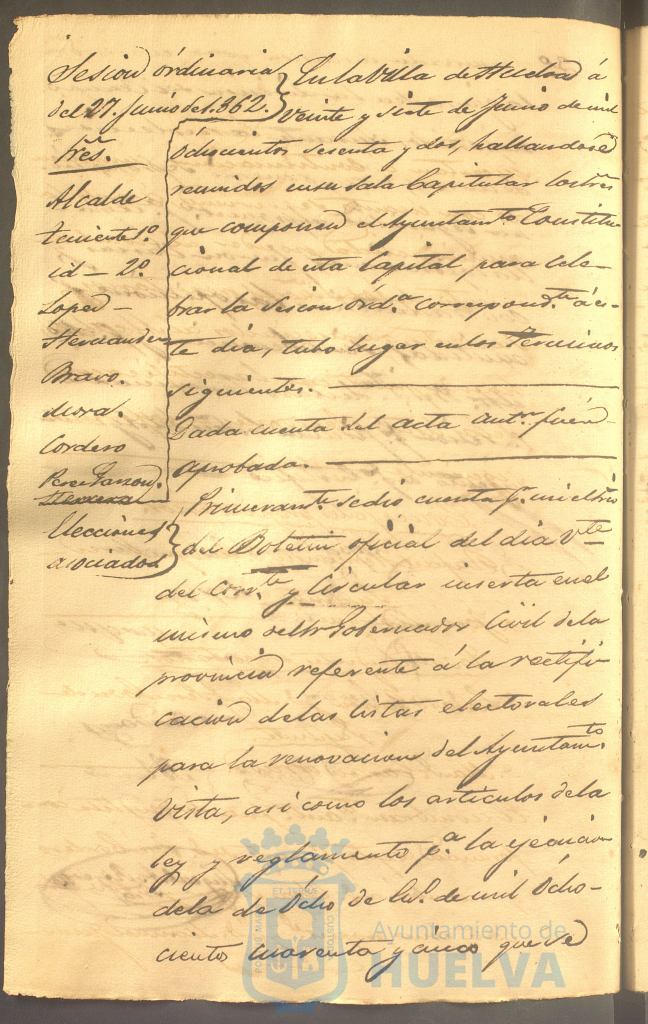 Sesion órdinaria
del 27. Junio de 1.862.
Sres.
Alcalde
teniente 1º
id – 2º
Lopez –
Hernandez
Bravo.
Mora.
Cordero
Perez Garzon.
Elecciones
asociados
En la Villa de Huelva á
veinte y siete de Junio de mil
óchocientos sesenta y dos, hallandose
reunidos en su Sala Capitular los Sres
que componen el Ayuntamto Constitu-
cional de esta Capital para cele-
brar la Sesion órda correspondte á es-
te dia, tubo lugar en los terminos
siguientes.
Dada cuenta del acta antr fué
aprobada.
Primeramte se dio cuenta pr mi el Srio
del Boletin oficial del dia Vte
del Corrte y Circular inserta en el
mismo del Sr Gobernador Civil de la
provincia referente á la rectifi-
cacion de las listas electorales
para la renovacion del Ayuntamto
Vista, asi como los articulos de la
ley y reglamento pa la ejecucion
de la de Ócho de de mil Ócho-
cientos cuarenta y cinco que se
Ayuntamiento de
HUELVA